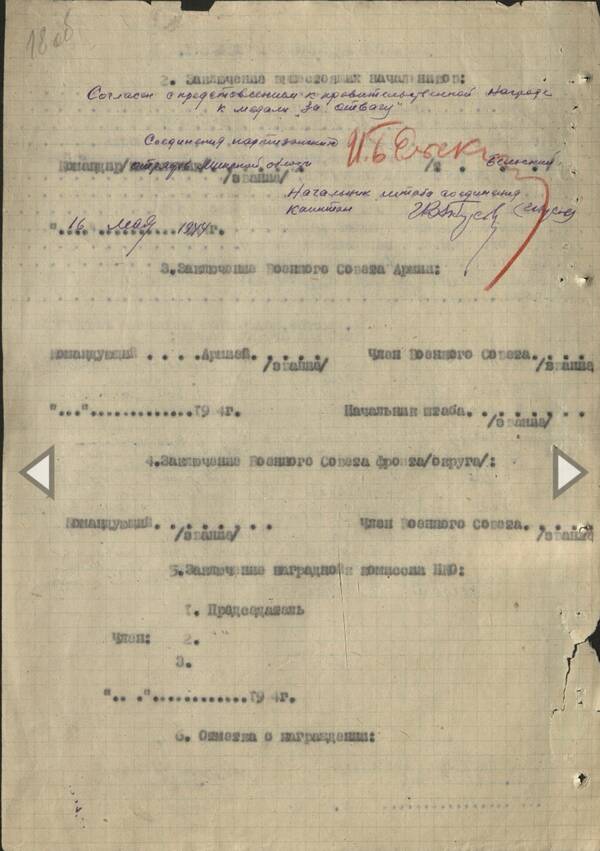 18 об
2. Заключение вышестоящих начальников:
Согласен с представлением к правительственной награде
к медали "За отвагу"
Соединения партизанских
Командир/отрядов Минской области
/звание/
Начальник штаба соединения
Капитан
"16" мая 1944г.
3.Заключение Военного Совета Армии:
Командующий . . . .Армией. . . . . Член Военного Совета. . . .
/звание/ /звание/
"...".............194г. Начальник штаба. . . . . . .
/звание/
4.Заключение Военного Совета фронта/округа/:
Командующий. . . . . . . . Член Военного Совета. . . .
/звание/ /звание
5.Заключение наградной комиссии НКО:
1. Председатель
Член: 2.
3.
".. ."............194г.
6. Отметка о награждении: